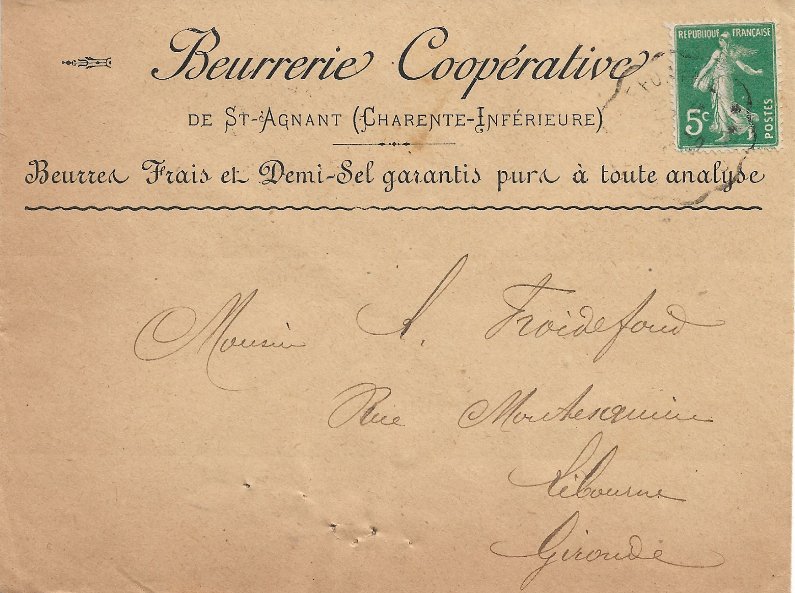 Beurrerie Coopérative
DE ST-AGNANT (CHARENTE-INFÉRIEURE)
Beurres Frais et Demi-Sel garantis purs à toute analyse
REPUBLIQUE FRANÇAISE
5c
POSTES
Monsieur A. Froidefond
Rue Montesquieu
Libourne
Gironde